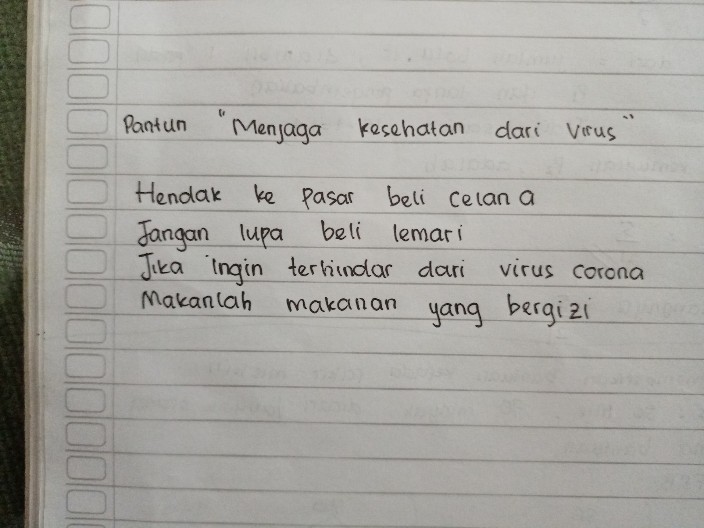 Pantun "Menjaga kesehatan dari Virus"
Hendak ke Pasar beli celana
Jangan lupa beli lemari
Jika ingin terhindar dari virus corona
Makanlah makanan yang bergizi